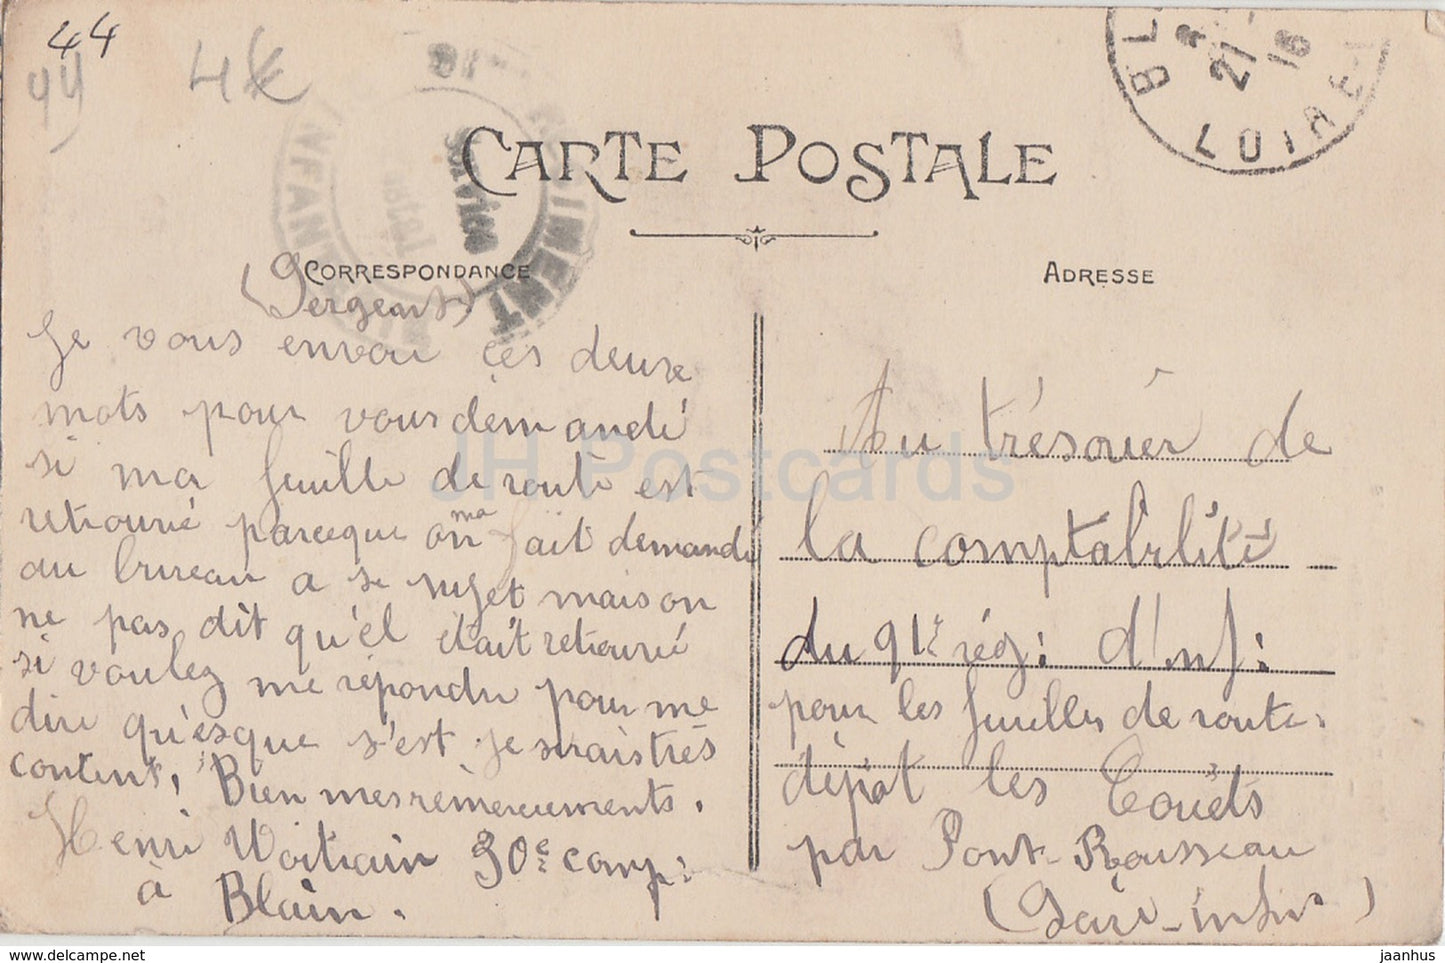 44
44
4€
BL
21
16
LOIRE-I
INFANTERIE
REGIMENT
Service
CARTE POSTALE
CORRESPONDANCE
ADRESSE
(Sergent)
Je vous envoi ces deux
mots pour vous demandé
si ma feuille de route est
retrouvé parceque on ma fait demandé
au bureau a se sujet mais on
ne pas dit qu'el était retrouvé
si voulez me répondre pour me
dire qu'esque s'est je srais très
content, Bien mes remerciements.
Henri Voitrain 30e comp:
à Blain.
Au trésorier de
la comptabilité
du 91e rég: d'inf:
pour les feuilles de route.
dépot les Couëts
par Pont-Rousseau
(Loire-infre)
JH Postcards
hipstamp.com/store/jaanhus